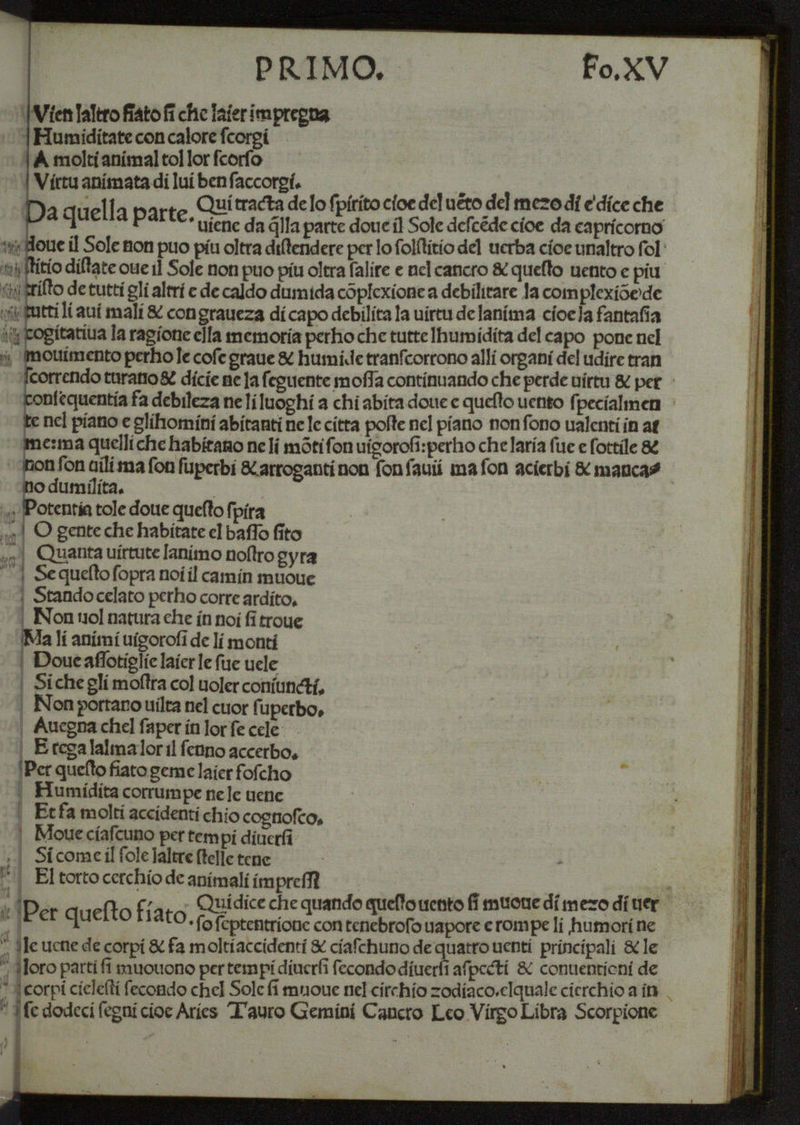 PRIMO. Fo.XV
Vien laltro fiato si che laier impregna
Humiditate con calore scorgi
A molti animal tol lor scorso
Virtu animata di lui ben saccorgi.
Da quella parte. Qui tracta de lo spirito cioe del uẽto del mezo di e' dice che
uiene da q̃lla parte doue il Sole descẽde cioe da capricorno
doue il Sole non puo piu oltra distendere per lo solstitio del uerba cioe unaltro sol
stitio distate oue il Sole non puo piu oltra salire e nel cancro & questo uento e piu
tristo de tutti gli altri e de caldo dumida cõplexione a debilitare la complexiõe de
tutti li aui mali & con graueza di capo debilita la uirtu de lanima cioe la fantasia
cogitatiua la ragione ella memoria perho che tutte lhumidita del capo pone nel
mouimento perho le cose graue & humide transcorrono alli organi del udire tran
scorrendo turano & dicie ne la seguente mossa continuando che perde uirtu & per
consequentia fa debileza ne li luoghi a chi abita doue e questo uento specialmen
te nel piano e glihomini abitanti ne le citta poste nel piano non sono ualenti in ar
me:ma quelli che habitano ne li mõti son uigorosi:perho che laria sue e sottile &
non son uili ma son superbi & arroganti non son sauii ma son acierbi & manca⸗
no dumilita.
Potentia tole doue questo spira
O gente che habitate el basso sito
Quanta uirtute lanimo nostro gyra
Se questo sopra noi il camin muoue
Stando celato perho corre ardito.
Non uol natura che in noi si troue
Ma li animi uigorosi de li monti
Doue assotiglie laier le sue uele
Si che gli mostra col uoler coniuncti.
Non portano uilta nel cuor superbo.
Auegna chel saper in lor se cele
E rega lalma lor il senno accerbo.
Per questo fiato geme laier foscho
Humidita corrumpe ne le uene
Et fa molti accidenti chio cognosco.
Moue ciascuno per tempi diuersi
Si come il sole laltre stelle tene
El torto cerchio de animali impressi
Per questo fiato. Qui dice che quando questo uento si muoue di mezo di uer
so septentrione con tenebroso uapore e rompe li humori ne
le uene de corpi & fa molti accidenti & ciaschuno de quatro uenti principali & le
loro parti si muouono per tempi diuersi secondo diuersi aspecti & conuentioni de
corpi cielesti secondo chel Sole si muoue nel circhio zodiaco.elquale cierchio a in
se dodeci segni cioe Aries Tauro Gemini Cancro Leo Virgo Libra Scorpione